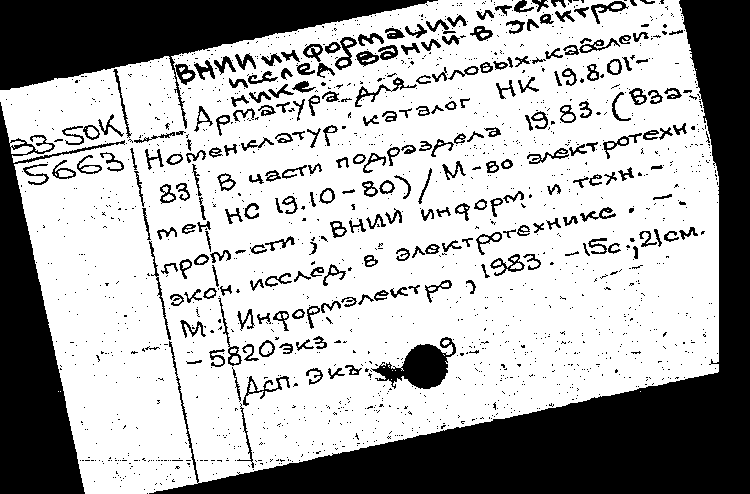 ВНИИ информации и техни
исследований в электроте
нике.
33-50К
5663
Арматура для силовых кабелей:
Номенклатур. каталог НК 19.8.01-
83 В части подраздела 19.83. (Вза-
мен НС 19.10-80) / М-во электротехн.
пром-сти, ВНИИ информ. и техн.-
экон. исслед. в электротехнике. -
М.: Информэлектро, 1983. -15с.; 21см.
- 5820 экз.
Дсп. Экз. 9.